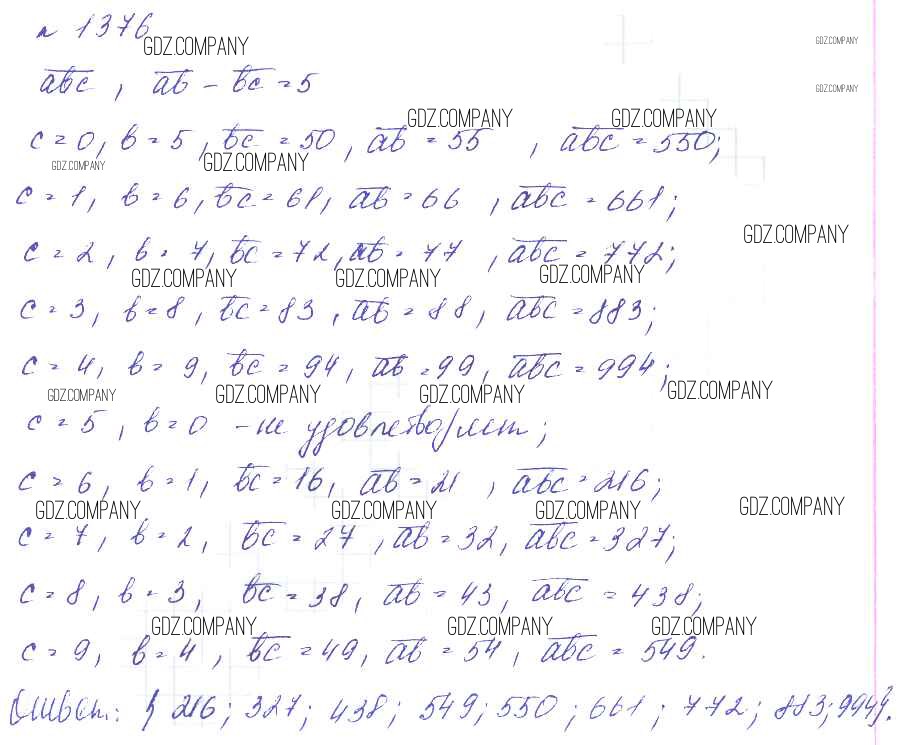 № 1376
GDZ.COMPANY GDZ.COMPANY
abc, ab - bc = 5 GDZ.COMPANY
GDZ.COMPANY GDZ.COMPANY
c = 0, b = 5, bc = 50, ab = 55, abc = 550;
GDZ.COMPANY GDZ.COMPANY
c = 1, b = 6, bc = 61, ab = 66, abc = 661;
GDZ.COMPANY
c = 2, b = 7, bc = 72, ab = 77, abc = 772;
GDZ.COMPANY GDZ.COMPANY GDZ.COMPANY
c = 3, b = 8, bc = 83, ab = 88, abc = 883;
c = 4, b = 9, bc = 94, ab = 99, abc = 994;
GDZ.COMPANY GDZ.COMPANY GDZ.COMPANY GDZ.COMPANY
c = 5, b = 0 - не удовлетворяет;
c = 6, b = 1, bc = 16, ab = 21, abc = 216;
GDZ.COMPANY GDZ.COMPANY GDZ.COMPANY GDZ.COMPANY
c = 7, b = 2, bc = 27, ab = 32, abc = 327;
c = 8, b = 3, bc = 38, ab = 43, abc = 438;
GDZ.COMPANY GDZ.COMPANY GDZ.COMPANY
c = 9, b = 4, bc = 49, ab = 54, abc = 549.
Ответ: { 216; 327; 438; 549; 550; 661; 772; 883; 994}.